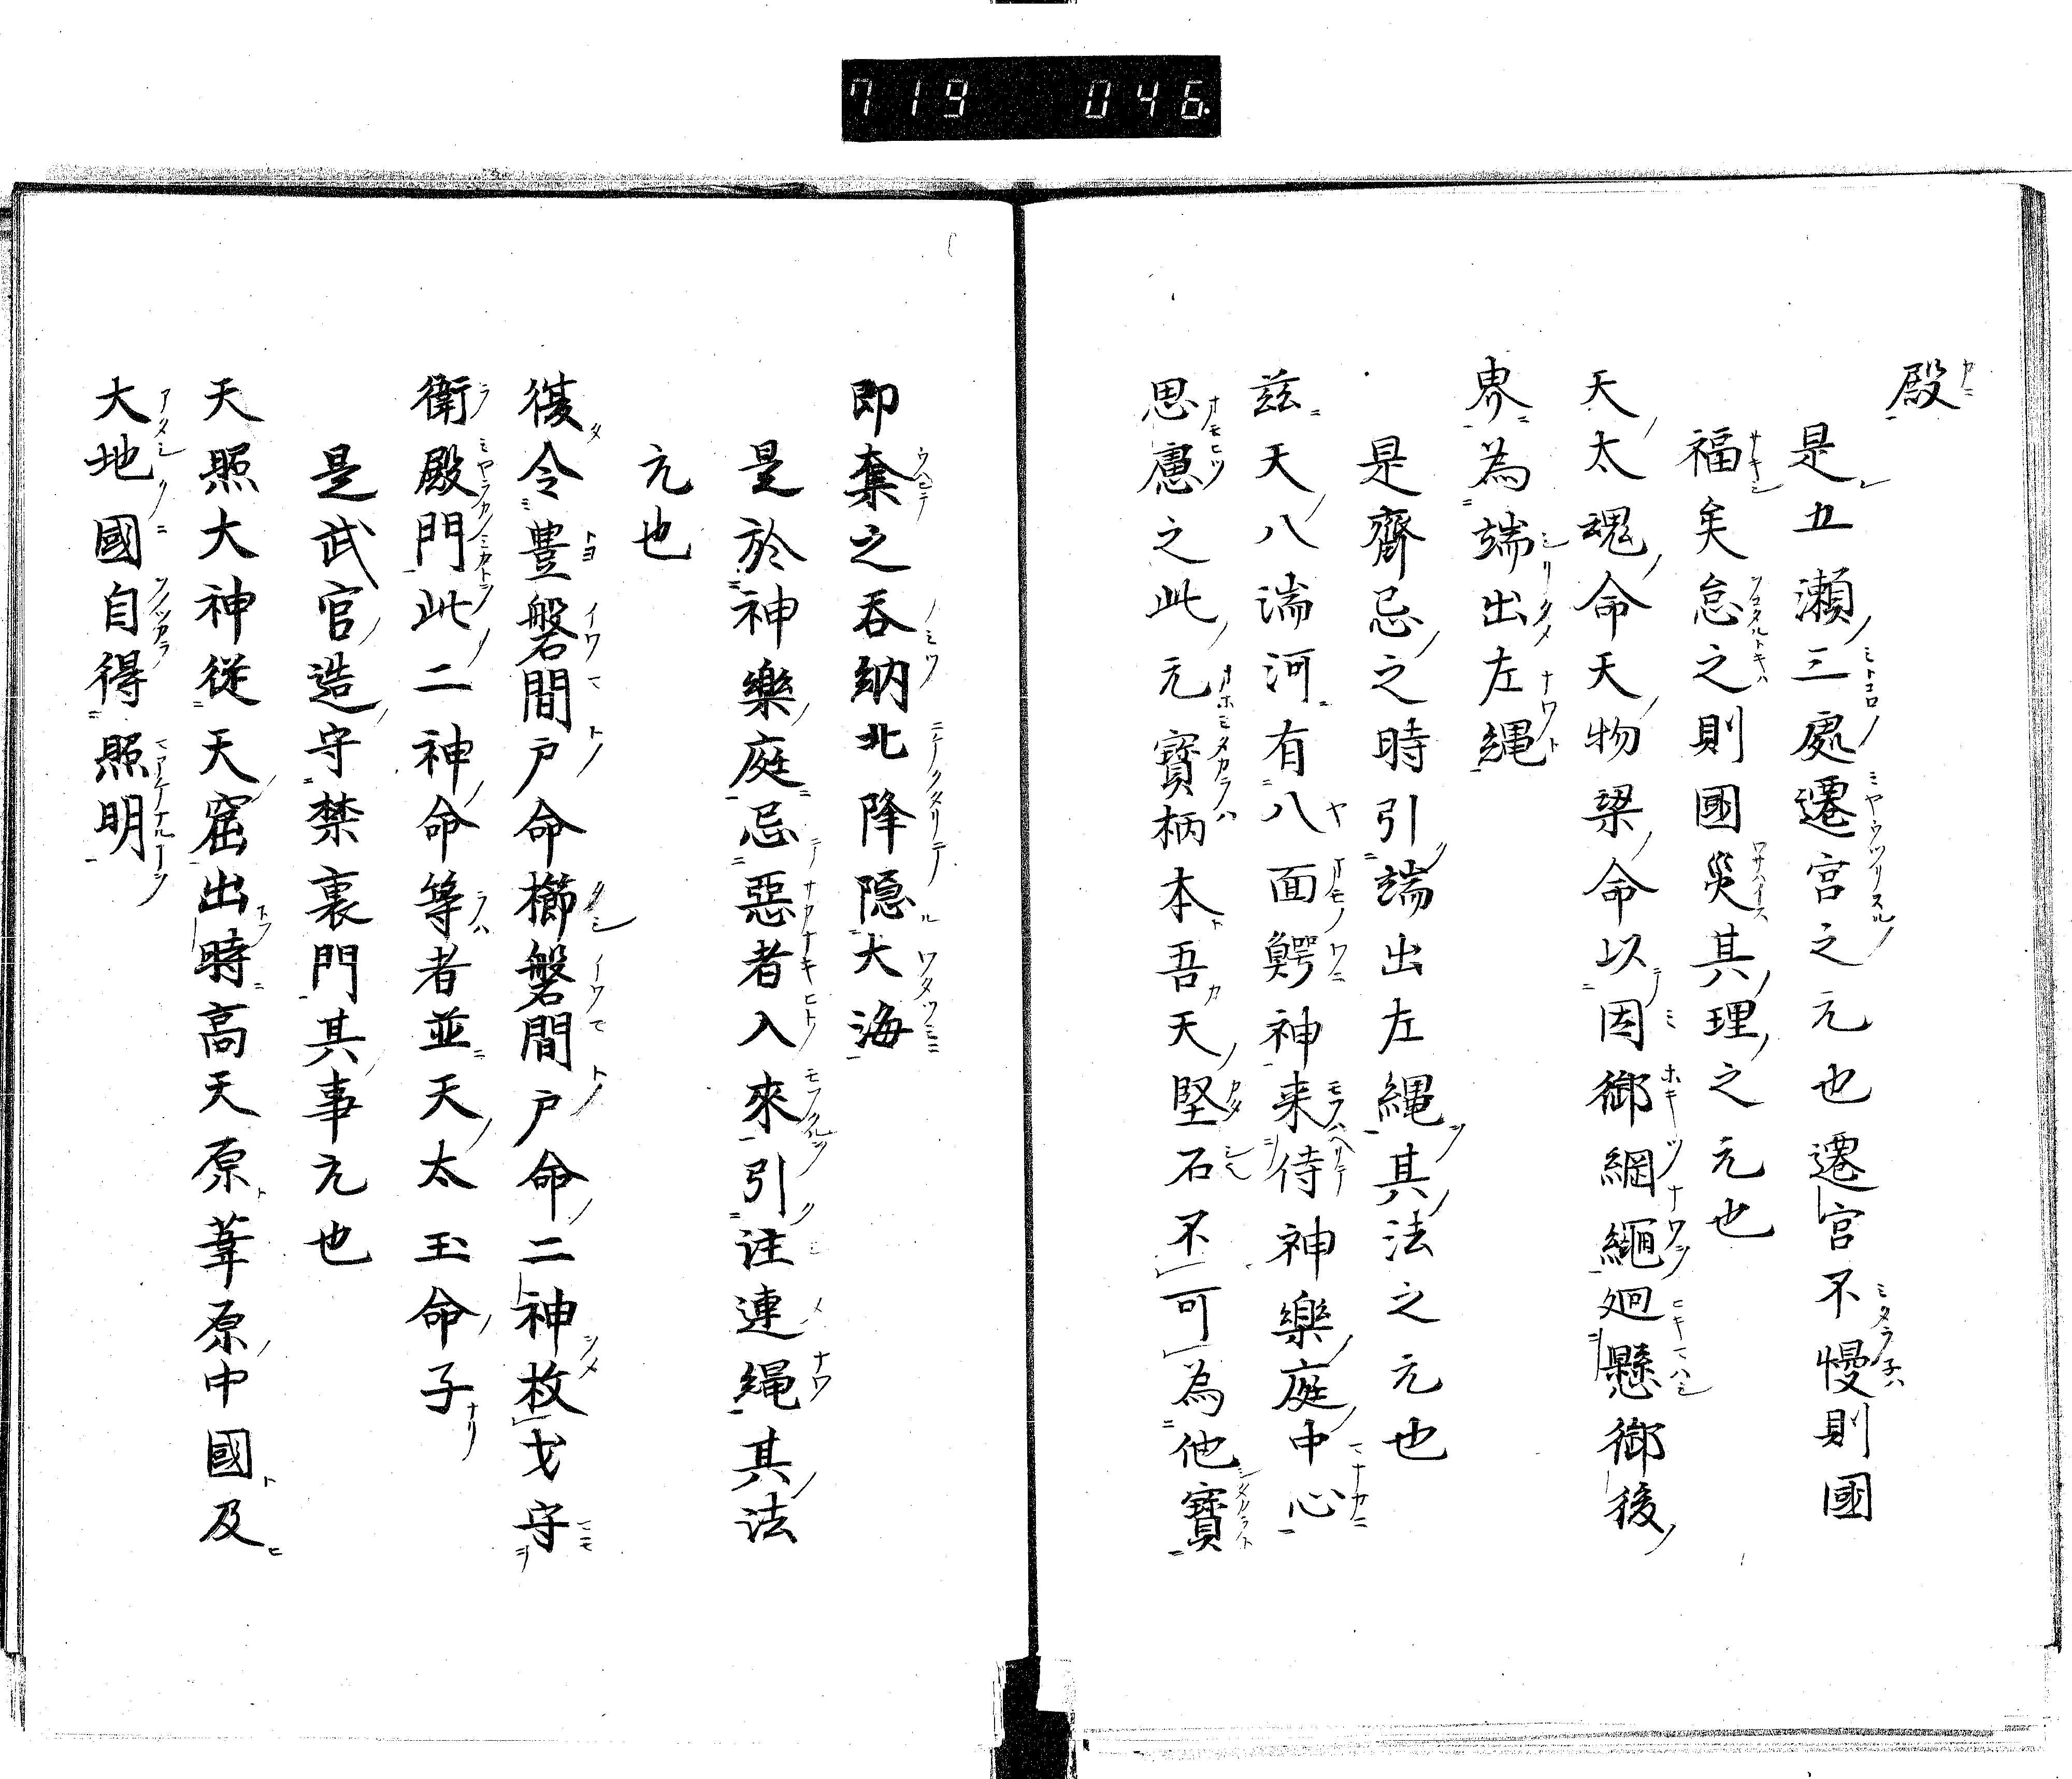 719 046
殿
是五瀬三處遷宮之元也遷宮不慢則國
福矣怠之則國災其理之元也
天太魂命天物梁命以因御綱繩廻懸御後
界為端出左縄
是齊忌之時引端出左縄其法之元也
茲天八湍河有八面鰐神来待神樂庭中心
思慮之此元寶柄本吾天堅石不可為他寶
即奪之吞納北降隠大海
是於神樂庭忌惡者入來引注連縄其法
元也
復令豊磐間戸命櫛磐間戸命二神枚戈守
衛殿門此二神命等者並天太玉命子
是武官造守禁裏門其事元也
天照大神従天窟出時高天原葦原中國及
大地國自得照明